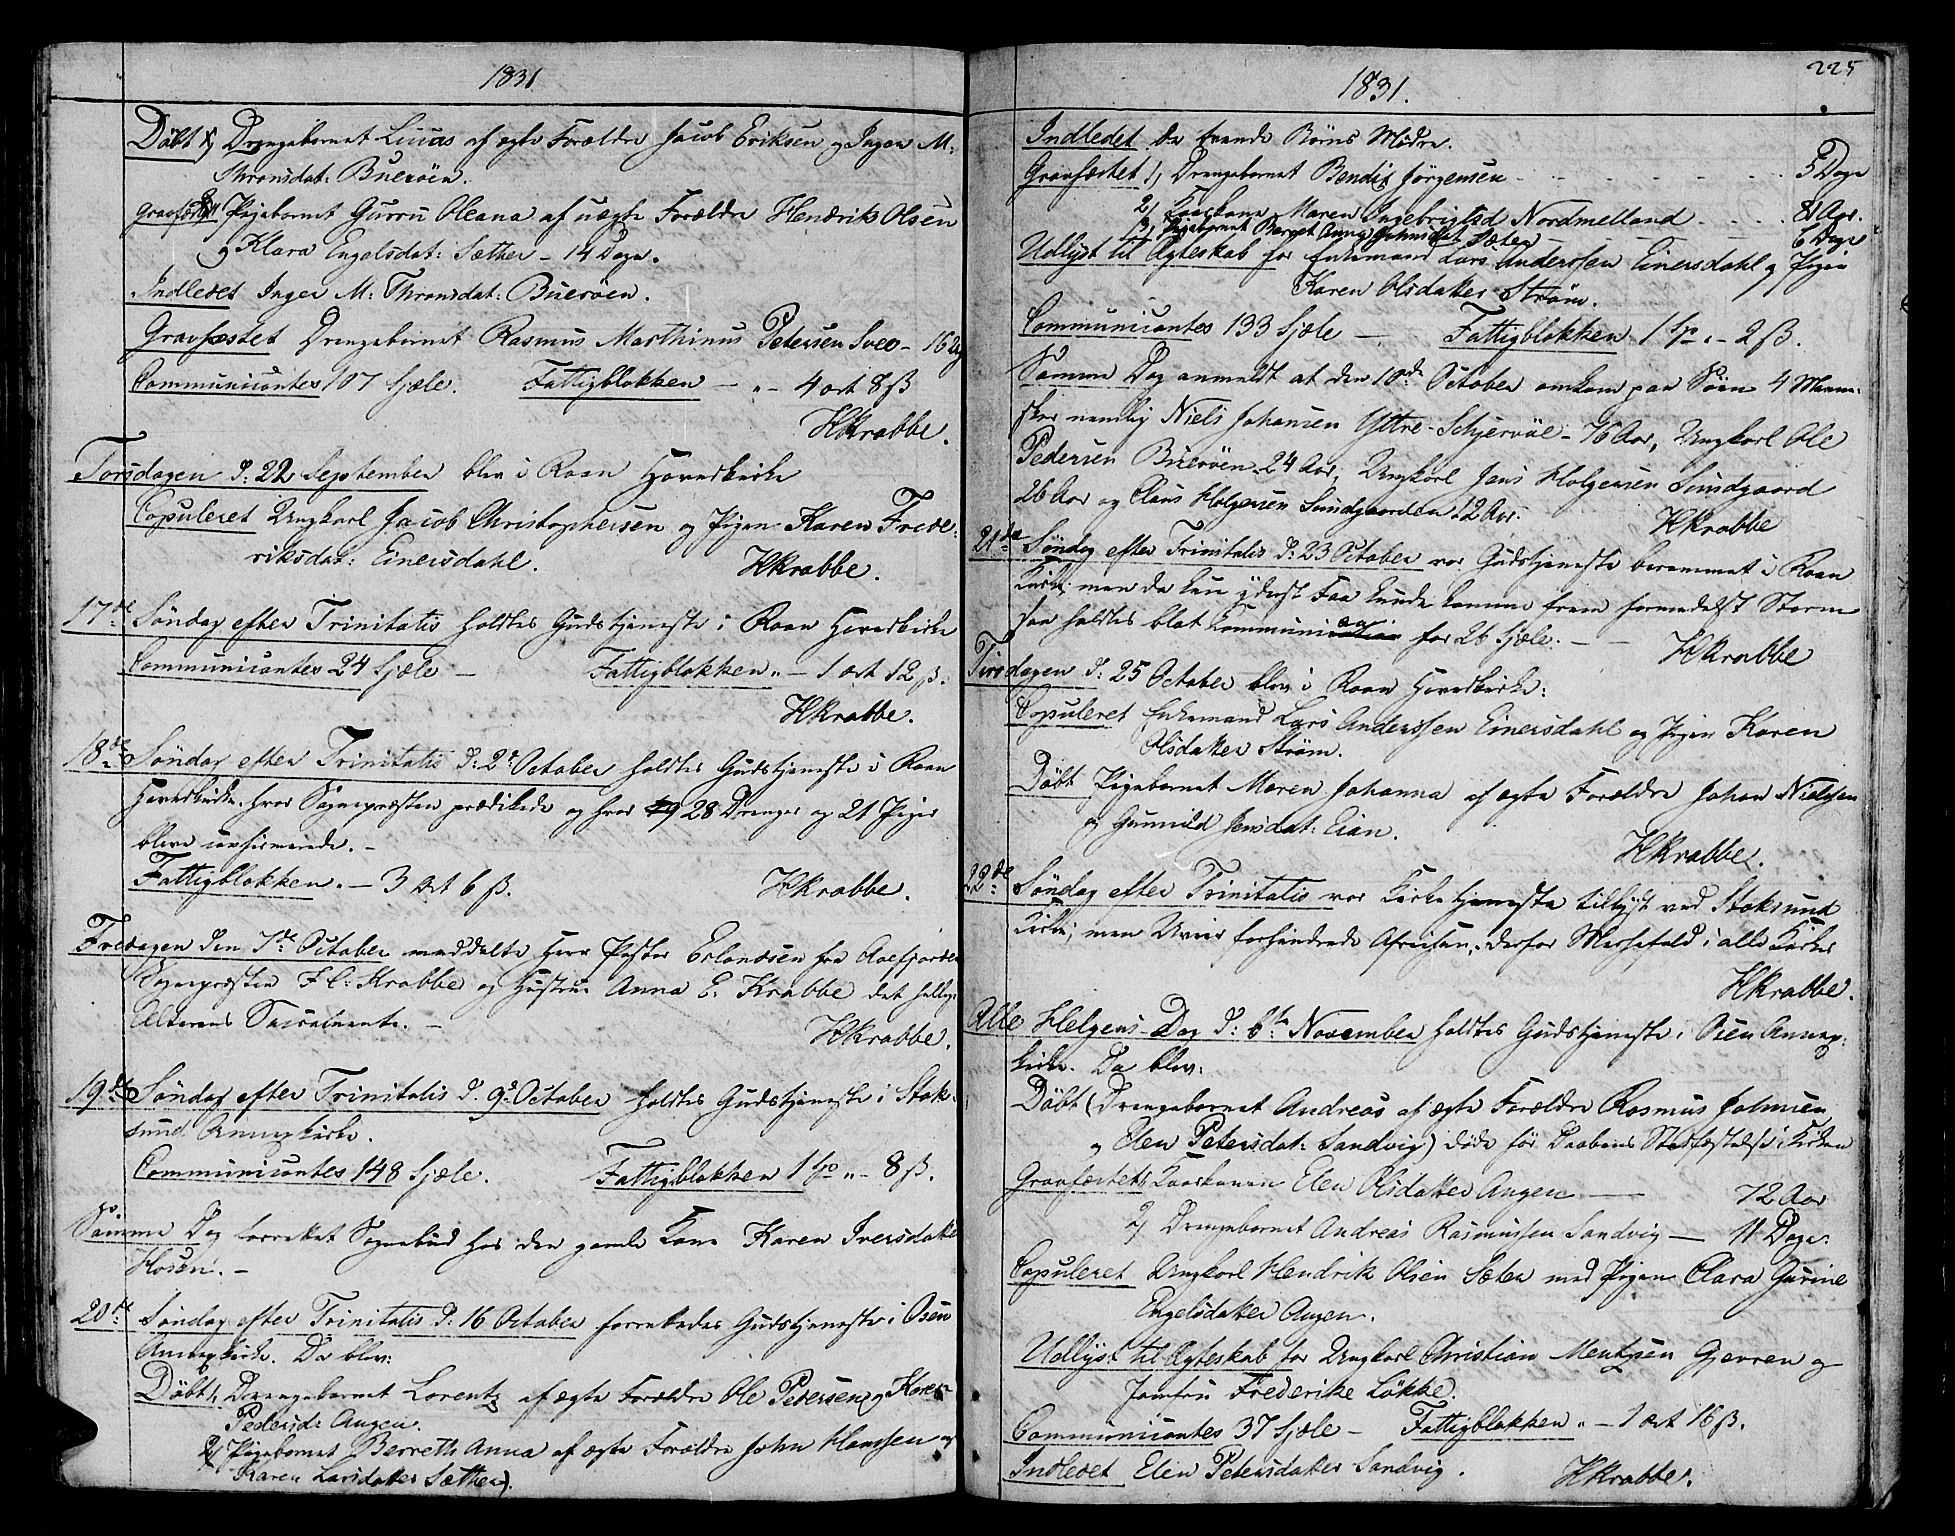 1831.
Döbt 1, Drengebarnet Lucas af ægte Forældre Jacob Eriksen og Inger M:
Thronsdat: Bueröen.
Gravfæstet Pigebarnet Gurru Oleana af uægte Forældre Hendrik Olsen
og Klara Engelsdat: Sæther - 14 Dage.
Indledet Inger M: Thronsdat: Bueröen.
Gravfæstet Drengebarnet Rasmus Marthinus Petersen Sveo - 16 Ug
Communicantes 107 Sjæle. Fattigblokken - „ - 4 ort 8 ß
HKrabbe.
Torsdagen d: 22 September blev i Roan Hovedkirke
Copuleret Ungkarl Jacob Christophersen og Pigen Karen Frede-
riksdat: Einersdahl. HKrabbe.
17de Söndag efter Trinitatis holdtes Gudstjeneste i Roan Hovedkirke
Communicantes 24 Sjæle - Fattigblokken „ - 1 ort 12 ß.
HKrabbe.
18de Söndag efter Trinitatis d: 2de October holdtes Gudstjeneste i Roan
Hovedkirke, hvor Sognepræsten prædikede og hvor 28 Drenge og 21 Piger
bleve confirmerede. -
Fattigblokken. - 3 ort 6 ß. HKrabbe.
Fredagen den 7de October meddelte Herr Pastor Erlandsen fra Aafjorden
Sognepræsten F. C: Krabbe og Hustru Anna E. Krabbe det hellige
Alterens Sacramente. - HKrabbe.
19de Söndag efter Trinitatis d. 9de October holdtes Gudstjeneste i Stok-
sund Annexkirke.
Communicantes 148 Sjæle. Fattigblokken 1 Sp „ - 8 ß.
Samme Dag forrettet Sognebud hos den gamle Kone Karen Iversdatter
Hosen. -
20de Söndag efter Trinitatis d: 16 October forrettedes Gudstjeneste i Osen
Annexkirke. Da blev:
Döbt 1, Drengebarnet Lorentz af ægte Forældre Ole Pedersen og Karen
Pedersd: Angen.
2, Pigebarnet Berreth Anna af ægte Forældre John Hanssen og
Karen Larsdatter Sæther.
225
1831.
Indledet de tvende Börns Mödre.
Gravfæstet 1, Drengebarnet Bendix Jörgensen - - - 5 Dage
2, Kaarkone Maren Ingebrigtsd Nordmelland - - - 81 Aar.
3, Pigebarnet Berret Anna Johnsdat Sæter - - - 6 Dage
Udlyst til Ægteskab for Enkemand Lars Anderssen Einersdahl og Pigen
Karen Olsdatter Ström.
Communicantes 133 Sjæle - Fattigblokken 1 Sp „ - 2 ß.
Samme Dag anmeldt at den 10de October omkom paa Söen 4 Menne-
sker nemlig Niels Johansen Yttre-Schjervöe - 76 Aar, Ungkarl Ole
Pedersen Bueröen 24 Aar, Ungkarl Jens Holgersen Sundgaard
26 Aar og Claus Holgersen Sundgaarden 12 Aar. HKrabbe
21de Söndag efter Trinitatis d: 23 October var Gudstjeneste berammet i Roan
Kirke; men da kun yderst Faa kunde komme frem formedelst Storm
saa holdtes blot Communion for 26 Sjæle. - HKrabbe
Tirsdagen d: 25 October blev i Roan Hovedkirke:
Copuleret Enkemand Lars Anderssen Einersdahl og Pigen Karen
Olsdatter Ström.
Döbt Pigebarnet Maren Johanna af ægte Forældre Johan Nielsen
og Gunnild Jensdat: Eian.
HKrabbe.
22de Söndag efter Trinitatis var Kirketjeneste tillyst ved Stoksund
Kirke; men Uveir forhindrede Afreisen; derfor Messefald i alle Kirker
HKrabbe.
Alle Helgens-Dag d: 6te November holdtes Gudstjeneste i Osen Annex-
kirke. Da blev:
Döbt (Drengebarnet Andreas af ægte Forældre Rasmus Johnsen
og Elen Petersdat: Sandvig) döde för Daabens Stadfæstelse i Kirken
Gravfæstet 1, Kaarkonen Elen Olsdatter Angen - 72 Aar
2, Drengebarnet Andreas Rasmussen Sandvig - 11 Dage.
Copuleret Ungkarl Hendrik Olsen Sæter med Pigen Clara Gurine
Engelsdatter Angen.
Udlyst til Ægteskab for Ungkarl Christian Mentzsen Gjevren og
Jomfru Frederike Lökke.
Communicantes 37 Sjæle - Fattigblokken „ - 1 ort 16 ß.
Indledet Elen Petersdatter Sandvig. HKrabbe.